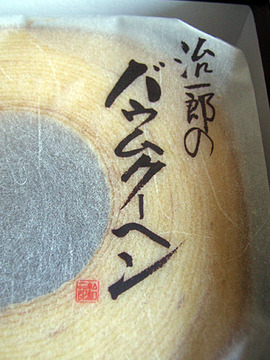 治一郎の
バウムクーヘン